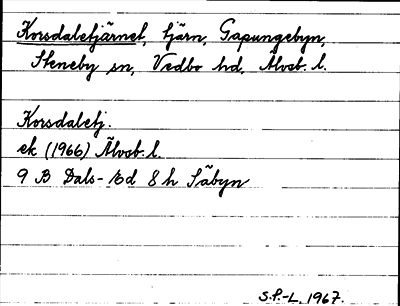 Korsdaletjärnet, tjärn, Gapungebyn,
Steneby sn, Vedbo hd, Älvsb. l.
Korsdaletj.
ek (1966) Älvsb. l.
9 B Dals-Ed 8 h Säbyn
S.P.-L. 1967.